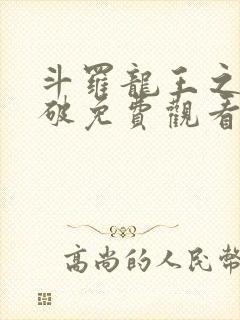 斗羅龍王之
破免費觀看
高尚的人民幣